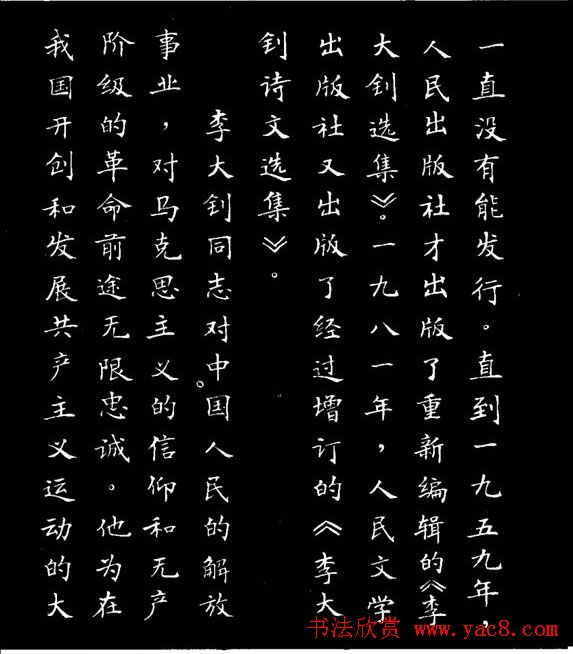 一直没有能发行。直到一九五九年，
人民出版社才出版了重新编辑的《李
大钊选集》。一九八一年，人民文学
出版社又出版了经过增订的《李大
钊诗文选集》。
李大钊同志对中国人民的解放
事业，对马克思主义的信仰和无产
阶级的革命前途无限忠诚。他为在
我国开创和发展共产主义运动的大
书法欣赏 www.yac8.com